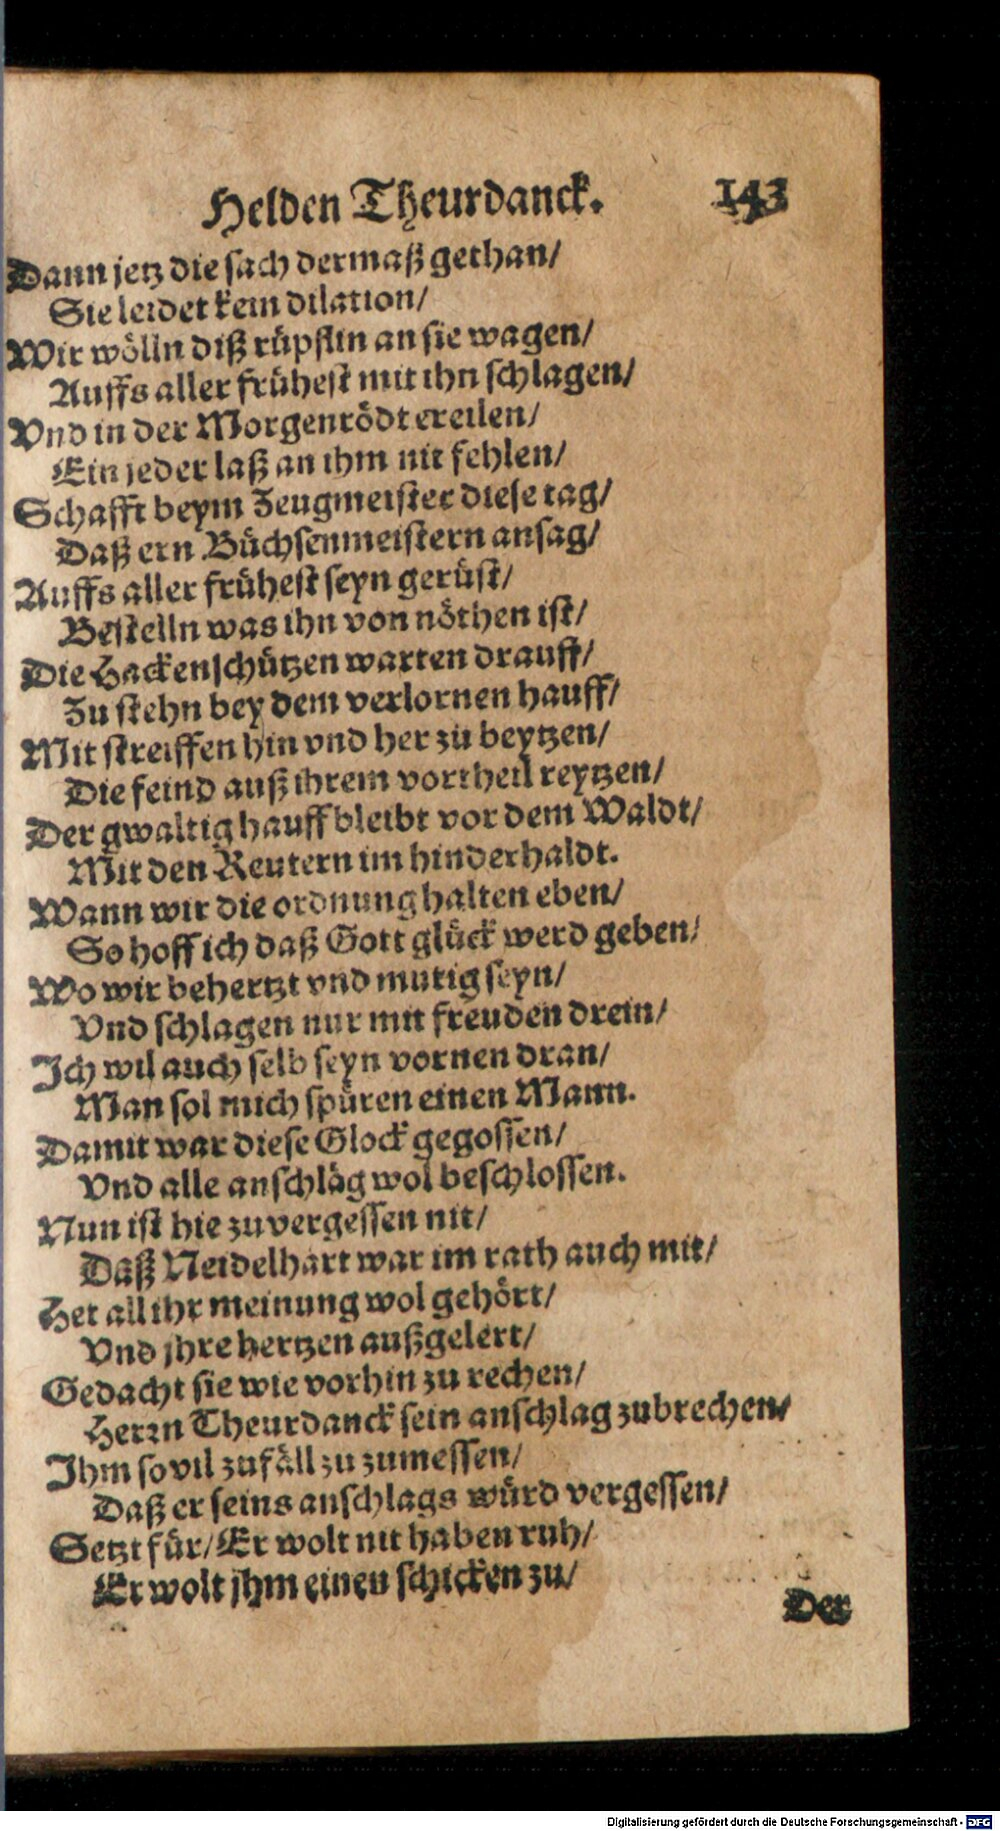 Helden Theurdanck. 143
Dann jetz die sach dermaß gethan/
Sie leidet kein dilation/
Wir wölln diß rüpflin an sie wagen/
Auffs aller frühest mit ihn schlagen/
Vnd in der Morgenrödt ereilen/
Ein jeder laß an ihm nit fehlen/
Schafft beym Zeugmeister diese tag/
Daß ern Büchsenmeistern ansag/
Auffs aller frühest seyn gerüst/
Bestelln was ihn von nöthen ist/
Die Hackenschützen warten drauff/
Zu stehn bey dem verlornen hauff/
Mit streiffen hin vnd her zu beytzen/
Die feind auß ihrem vortheil reytzen/
Der gwaltig hauff bleibt vor dem Waldt/
Mit den Reutern im hinderhaldt.
Wann wir die ordnung halten eben/
So hoff ich daß Gott glück werd geben/
Wo wir behertzt vnd mutig seyn/
Vnd schlagen nur mit freuden drein/
Ich wil auch selb seyn vornen dran/
Man sol mich spüren einen Mann.
Damit war diese Glock gegossen/
Vnd alle anschläg wol beschlossen.
Nun ist hie zuvergessen nit/
Daß Neidelhart war im rath auch mit/
Het all ihr meinung wol gehört/
Vnd jhre hertzen außgelert/
Gedacht sie wie vorhin zu rechen/
Herrn Theurdanck sein anschlag zubrechen/
Ihm so vil zufäll zu zumessen/
Daß er seins anschlags würd vergessen/
Setzt für/ Er wolt nit haben ruh/
Er wolt jhm einen schicken zu/
Der
Digitalisierung gefördert durch die Deutsche Forschungsgemeinschaft - DFG